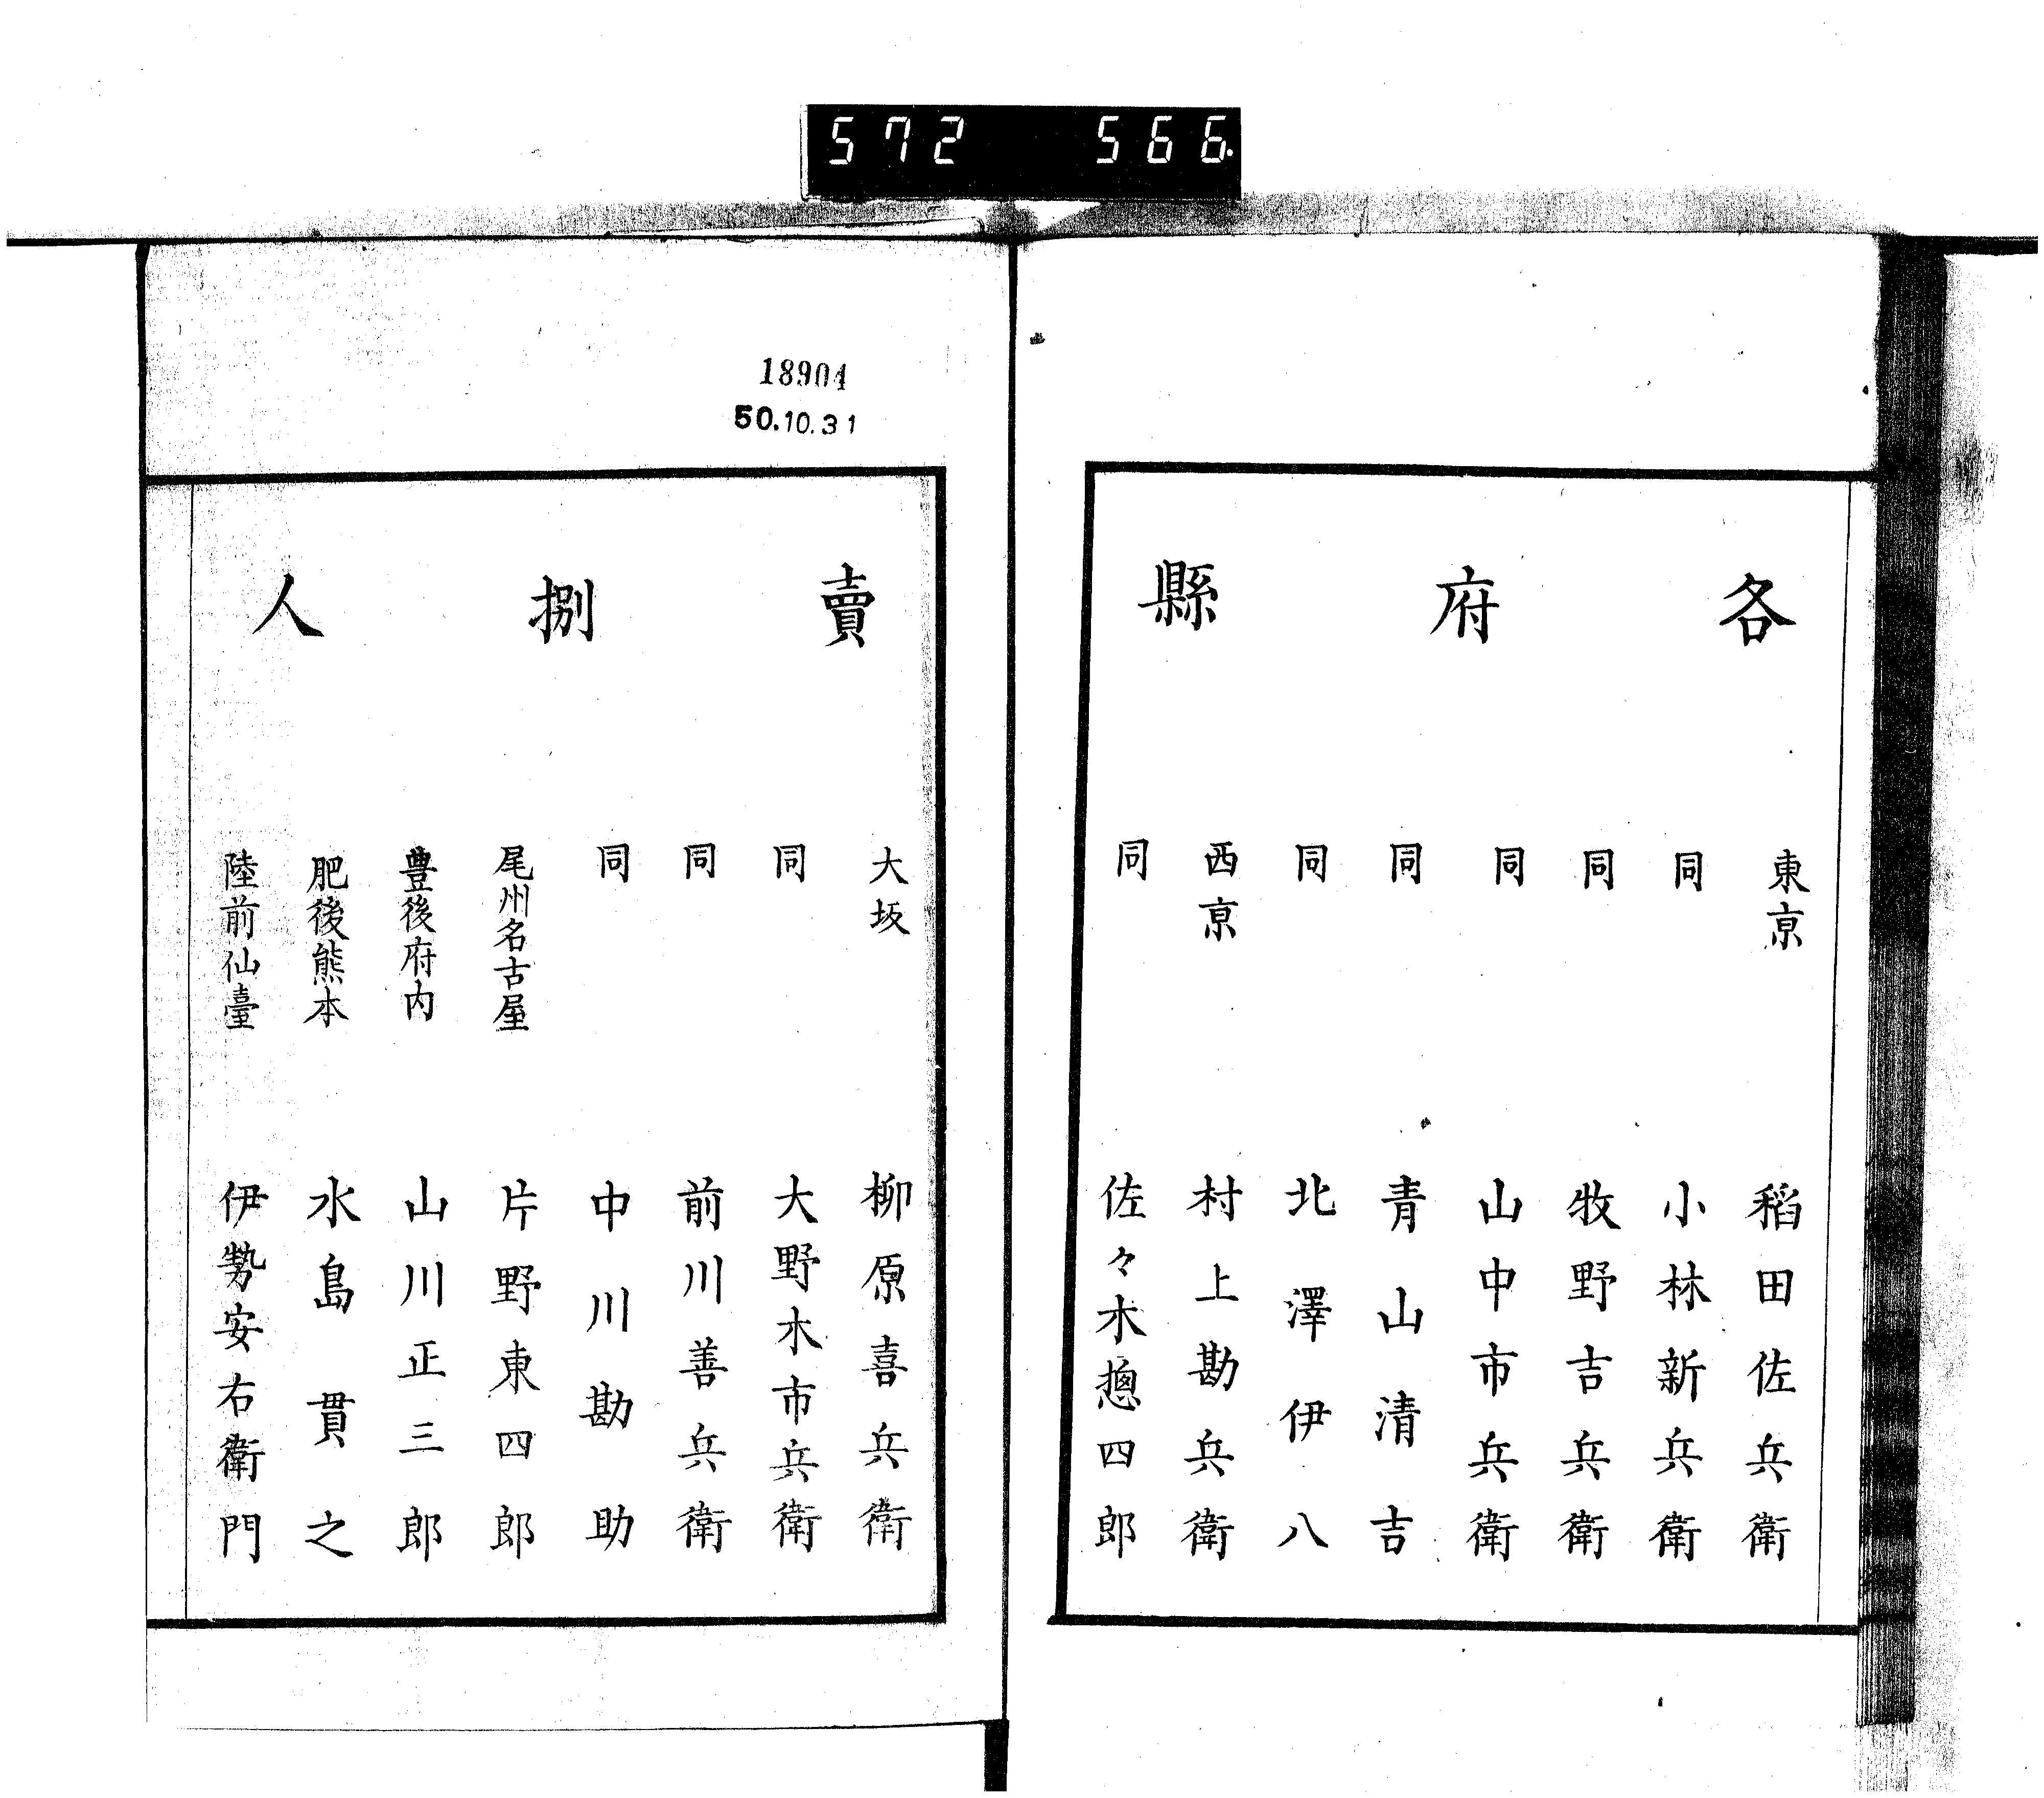 572 566
各府縣
東京 稻田佐兵衛
同 小林新兵衛
同 牧野吉兵衛
同 山中市兵衛
同 青山清吉
同 北澤伊八
西京 村上勘兵衛
同 佐々木惣四郎
18904
50.10.31
賣捌人
大坂 柳原喜兵衛
同 大野木市兵衛
同 前川善兵衛
同 中川勘助
尾州名古屋 片野東四郎
豊後府内 山川正三郎
肥後熊本 水島貫之
陸前仙臺 伊勢安右衛門